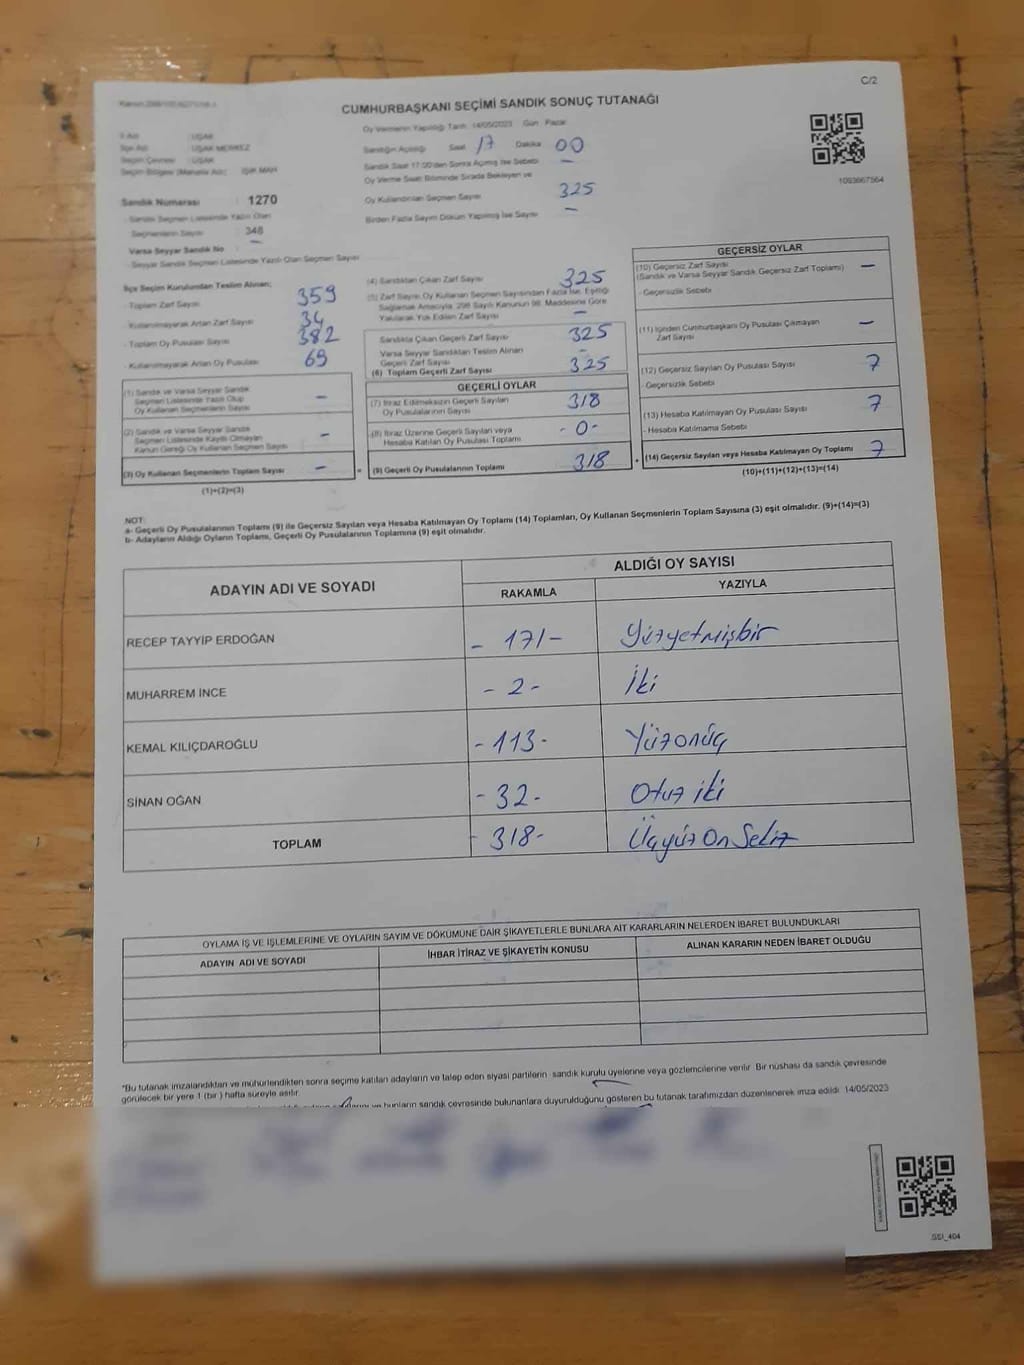 C/2
CUMHURBAŞKANI SEÇİMİ SANDIK SONUÇ TUTANAĞI
Oy Vermenin Yapıldığı Tarih: 14/05/2023 Gün: Pazar
İl Adı : UŞAK
İlçe Adı : UŞAK MERKEZ
Seçim Çevresi : UŞAK
Seçim Bölgesi (Mahalle Adı) IŞIK MAH
Sandığın Açıldığı Saat 17 Dakika 00
Sandık Saat 17:00'den Sonra Açılmış İse Sebebi —
Oy Verme Saati Bitiminde Sırada Bekleyen ve
Oy Kullandırılan Seçmen Sayısı 325
Birden Fazla Sayım Döküm Yapılmış İse Sayısı —
1093667564
Sandık Numarası 1270
- Sandık Seçmen Listesinde Yazılı Olan
Seçmenlerin Sayısı 348
Varsa Seyyar Sandık No —
- Seyyar Sandık Seçmen Listesinde Yazılı Olan Seçmen Sayısı
İlçe Seçim Kurulundan Teslim Alınan;
- Toplam Zarf Sayısı 359
- Kullanılmayarak Artan Zarf Sayısı 34
- Toplam Oy Pusulası Sayısı 382
- Kullanılmayarak Artan Oy Pusulası 69
(1) Sandık ve Varsa Seyyar Sandık
Seçmen Listesinde Yazılı Olup
Oy Kullanan Seçmenlerin Sayısı –
(2) Sandık ve Varsa Seyyar Sandık
Seçmen Listesinde Kayıtlı Olmayan
Kanun Gereği Oy Kullanan Seçmen Sayısı –
(3) Oy Kullanan Seçmenlerin Toplam Sayısı –
(1)+(2)=(3)
(4) Sandıktan Çıkan Zarf Sayısı 325
(5) Zarf Sayısı Oy Kullanan Seçmen Sayısından Fazla İse, Eşitliği
Sağlamak Amacıyla, 298 Sayılı Kanunun 98. Maddesine Göre
Yakılarak Yok Edilen Zarf Sayısı –
Sandıkta Çıkan Geçerli Zarf Sayısı 325
Varsa Seyyar Sandıktan Teslim Alınan
Geçerli Zarf Sayısı –
(6) Toplam Geçerli Zarf Sayısı 325
GEÇERLİ OYLAR
(7) İtiraz Edilmeksizin Geçerli Sayılan
Oy Pusulalarının Sayısı 318
(8) İtiraz Üzerine Geçerli Sayılan veya
Hesaba Katılan Oy Pusulası Toplamı -0-
(9) Geçerli Oy Pusulalarının Toplamı 318
GEÇERSİZ OYLAR
(10) Geçersiz Zarf Sayısı
(Sandık ve Varsa Seyyar Sandık Geçersiz Zarf Toplamı) —
- Geçersizlik Sebebi
(11) İçinden Cumhurbaşkanı Oy Pusulası Çıkmayan
Zarf Sayısı —
(12) Geçersiz Sayılan Oy Pusulası Sayısı 7
- Geçersizlik Sebebi
(13) Hesaba Katılmayan Oy Pusulası Sayısı 7
- Hesaba Katılmama Sebebi
(14) Geçersiz Sayılan veya Hesaba Katılmayan Oy Toplamı 7
(10)+(11)+(12)+(13)=(14)
NOT:
a- Geçerli Oy Pusulalarının Toplamı (9) ile Geçersiz Sayılan veya Hesaba Katılmayan Oy Toplamı (14) Toplamları, Oy Kullanan Seçmenlerin Toplam Sayısına (3) eşit olmalıdır. (9)+(14)=(3)
b- Adayların Aldığı Oyların Toplamı, Geçerli Oy Pusulalarının Toplamına (9) eşit olmalıdır.
ADAYIN ADI VE SOYADI
ALDIĞI OY SAYISI
RAKAMLA YAZIYLA
RECEP TAYYİP ERDOĞAN - 171- Yüzyetmişbir
MUHARREM İNCE - 2 - İki
KEMAL KILIÇDAROĞLU - 113 - Yüzonüç
SİNAN OĞAN - 32 - Otuz iki
TOPLAM - 318 - Üçyüz On Sekiz
OYLAMA İŞ VE İŞLEMLERİNE VE OYLARIN SAYIM VE DÖKÜMÜNE DAİR ŞİKAYETLERLE BUNLARA AİT KARARLARIN NELERDEN İBARET BULUNDUKLARI
ADAYIN ADI VE SOYADI İHBAR İTİRAZ VE ŞİKAYETİN KONUSU ALINAN KARARIN NEDEN İBARET OLDUĞU
*Bu tutanak imzalandıktan ve mühürlendikten sonra seçime katılan adayların ve talep eden siyasi partilerin sandık kurulu üyelerine veya gözlemcilerine verilir. Bir nüshası da sandık çevresinde
görülecek bir yere 1 (bir) hafta süreyle asılır.
ve bunların sandık çevresinde bulunanlara duyurulduğunu gösteren bu tutanak tarafımızdan düzenlenerek imza edildi. 14/05/2023
SSI_404